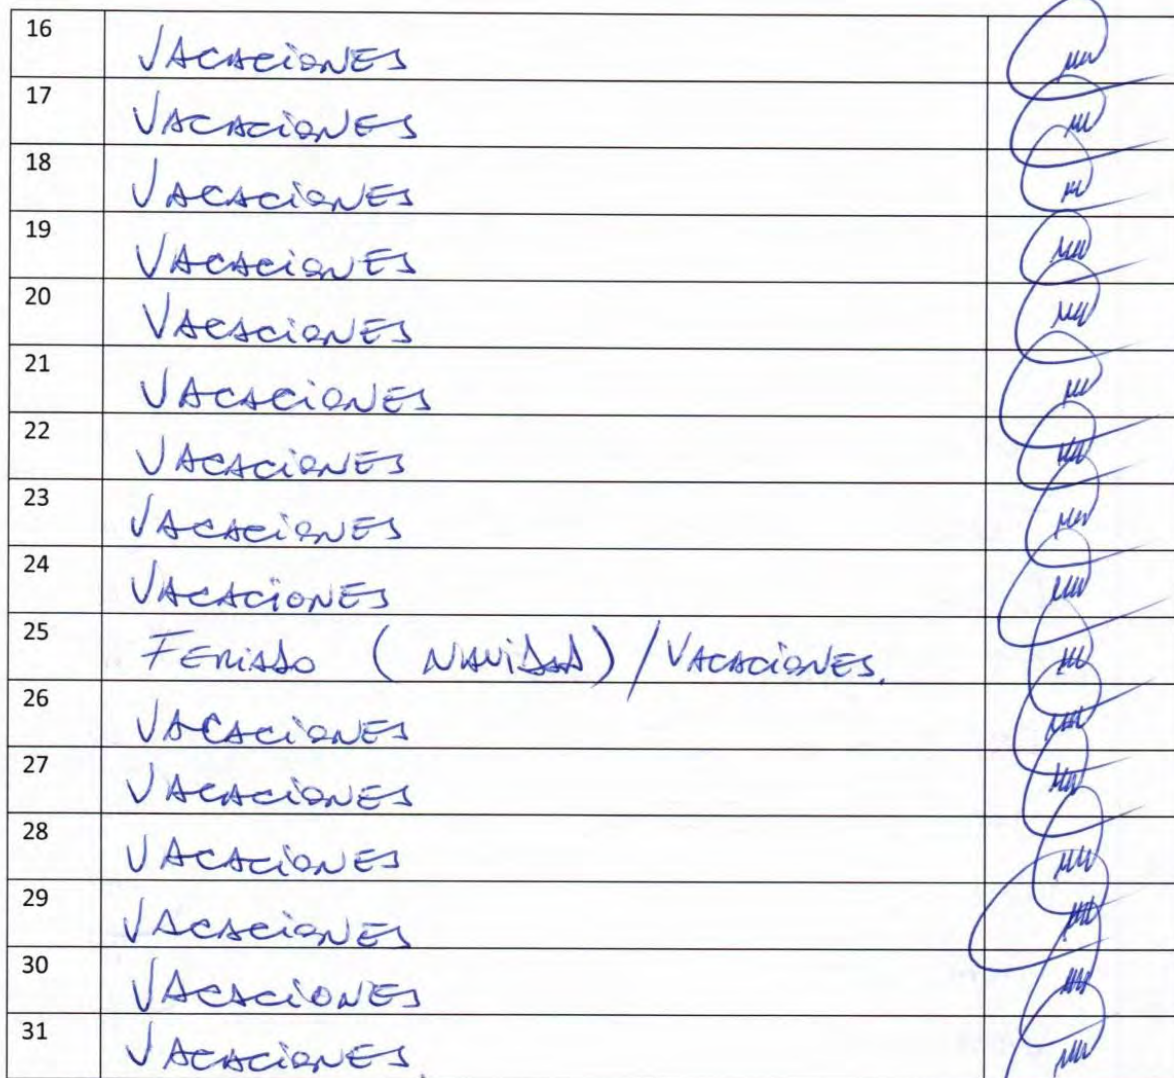 16 VACACIONES
17 VACACIONES
18 VACACIONES
19 VACACIONES
20 VACACIONES
21 VACACIONES
22 VACACIONES
23 VACACIONES
24 VACACIONES
25 FERIADO (NAVIDAD) / VACACIONES.
26 VACACIONES
27 VACACIONES
28 VACACIONES
29 VACACIONES
30 VACACIONES
31 VACACIONES.